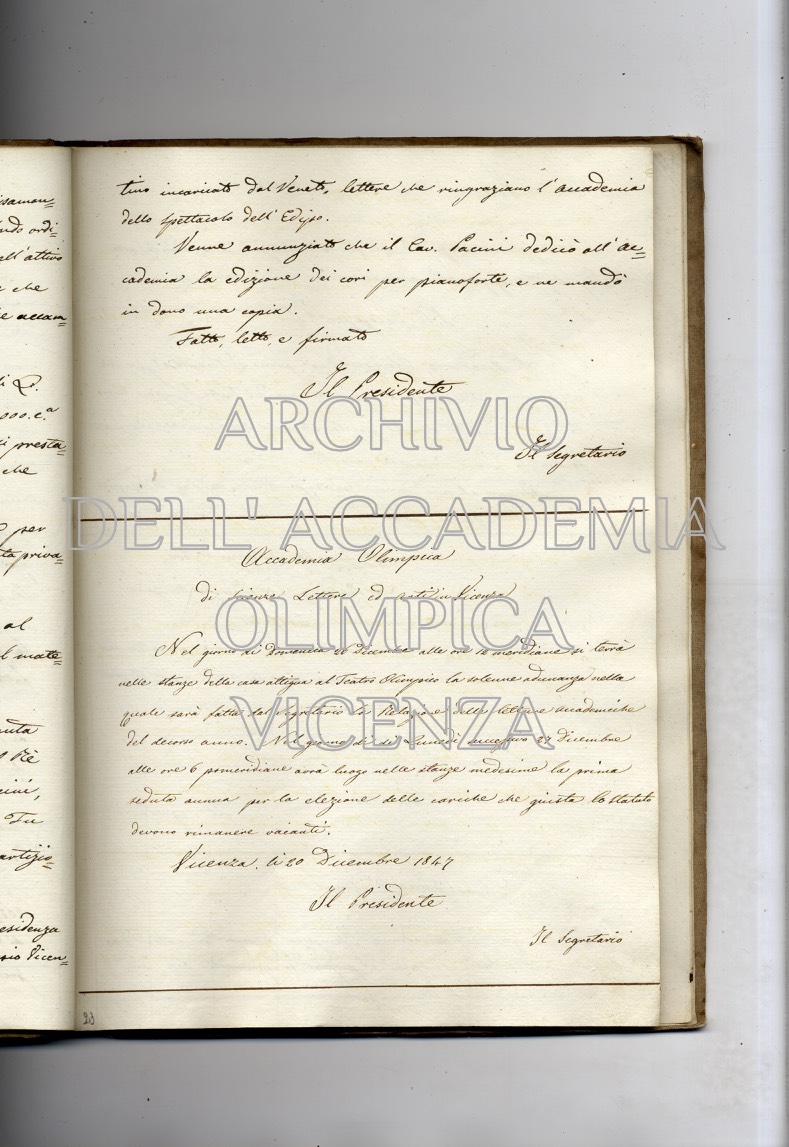 isamen=
ndo ordi=
ell'attivo
e che
ie accam=
li L.
000. c.a
si presta=
che
per
ta priva=
al
l mate=
nuta
Rè
cini,
Tu
artizio=
esidenza
sio Vicen=
tino incaricato dal Veneto, lettere che ringraziano l'accademia
dello spettacolo dell'Edipo.
Venne annunziato che il Cav. Pacini dedicò all'ac=
cademia la edizione dei cori per pianoforte, e ne mandò
in dono una copia.
Fatto, letto, e firmato
Il Presidente
Il Segretario
Accademia Olimpica
di Scienze Lettere ed Arti in Vicenza
Nel giorno di Domenica 26 Dicembre alle ore 12 meridiane si terrà
nelle stanze della casa attigua al Teatro Olimpico la solenne adunanza nella
quale sarà fatta dal Segretario la Relazione delle letture accademiche
del decorso anno. Nel giorno di Lunedì successivo 27 Dicembre
alle ore 6 pomeridiane avrà luogo nelle stanze medesime la prima
seduta annua per la elezione delle cariche che giusta lo statuto
devono rimanere vacanti.
Vicenza li 20 Dicembre 1847
Il Presidente
Il Segretario
23
ARCHIVIO
DELL'ACCADEMIA
OLIMPICA
VICENZA